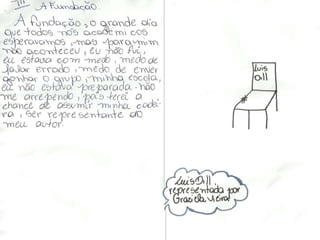 III
A Fundação.
A fundação, o grande dia
que todos nós acadêmicos
esperavamos, mas para mim
não aconteceu, eu não fui,
eu estava com medo, medo de
falar errado, medo de enver
gonhar o grupo, minha escola,
eu não estava preparada. não
me arrependo, pois terei a
chance de assumir minha cadei
ra, ser representante do
meu autor.
Luis
Dill
Luis Dill,
representada por
Graciela Vieira!